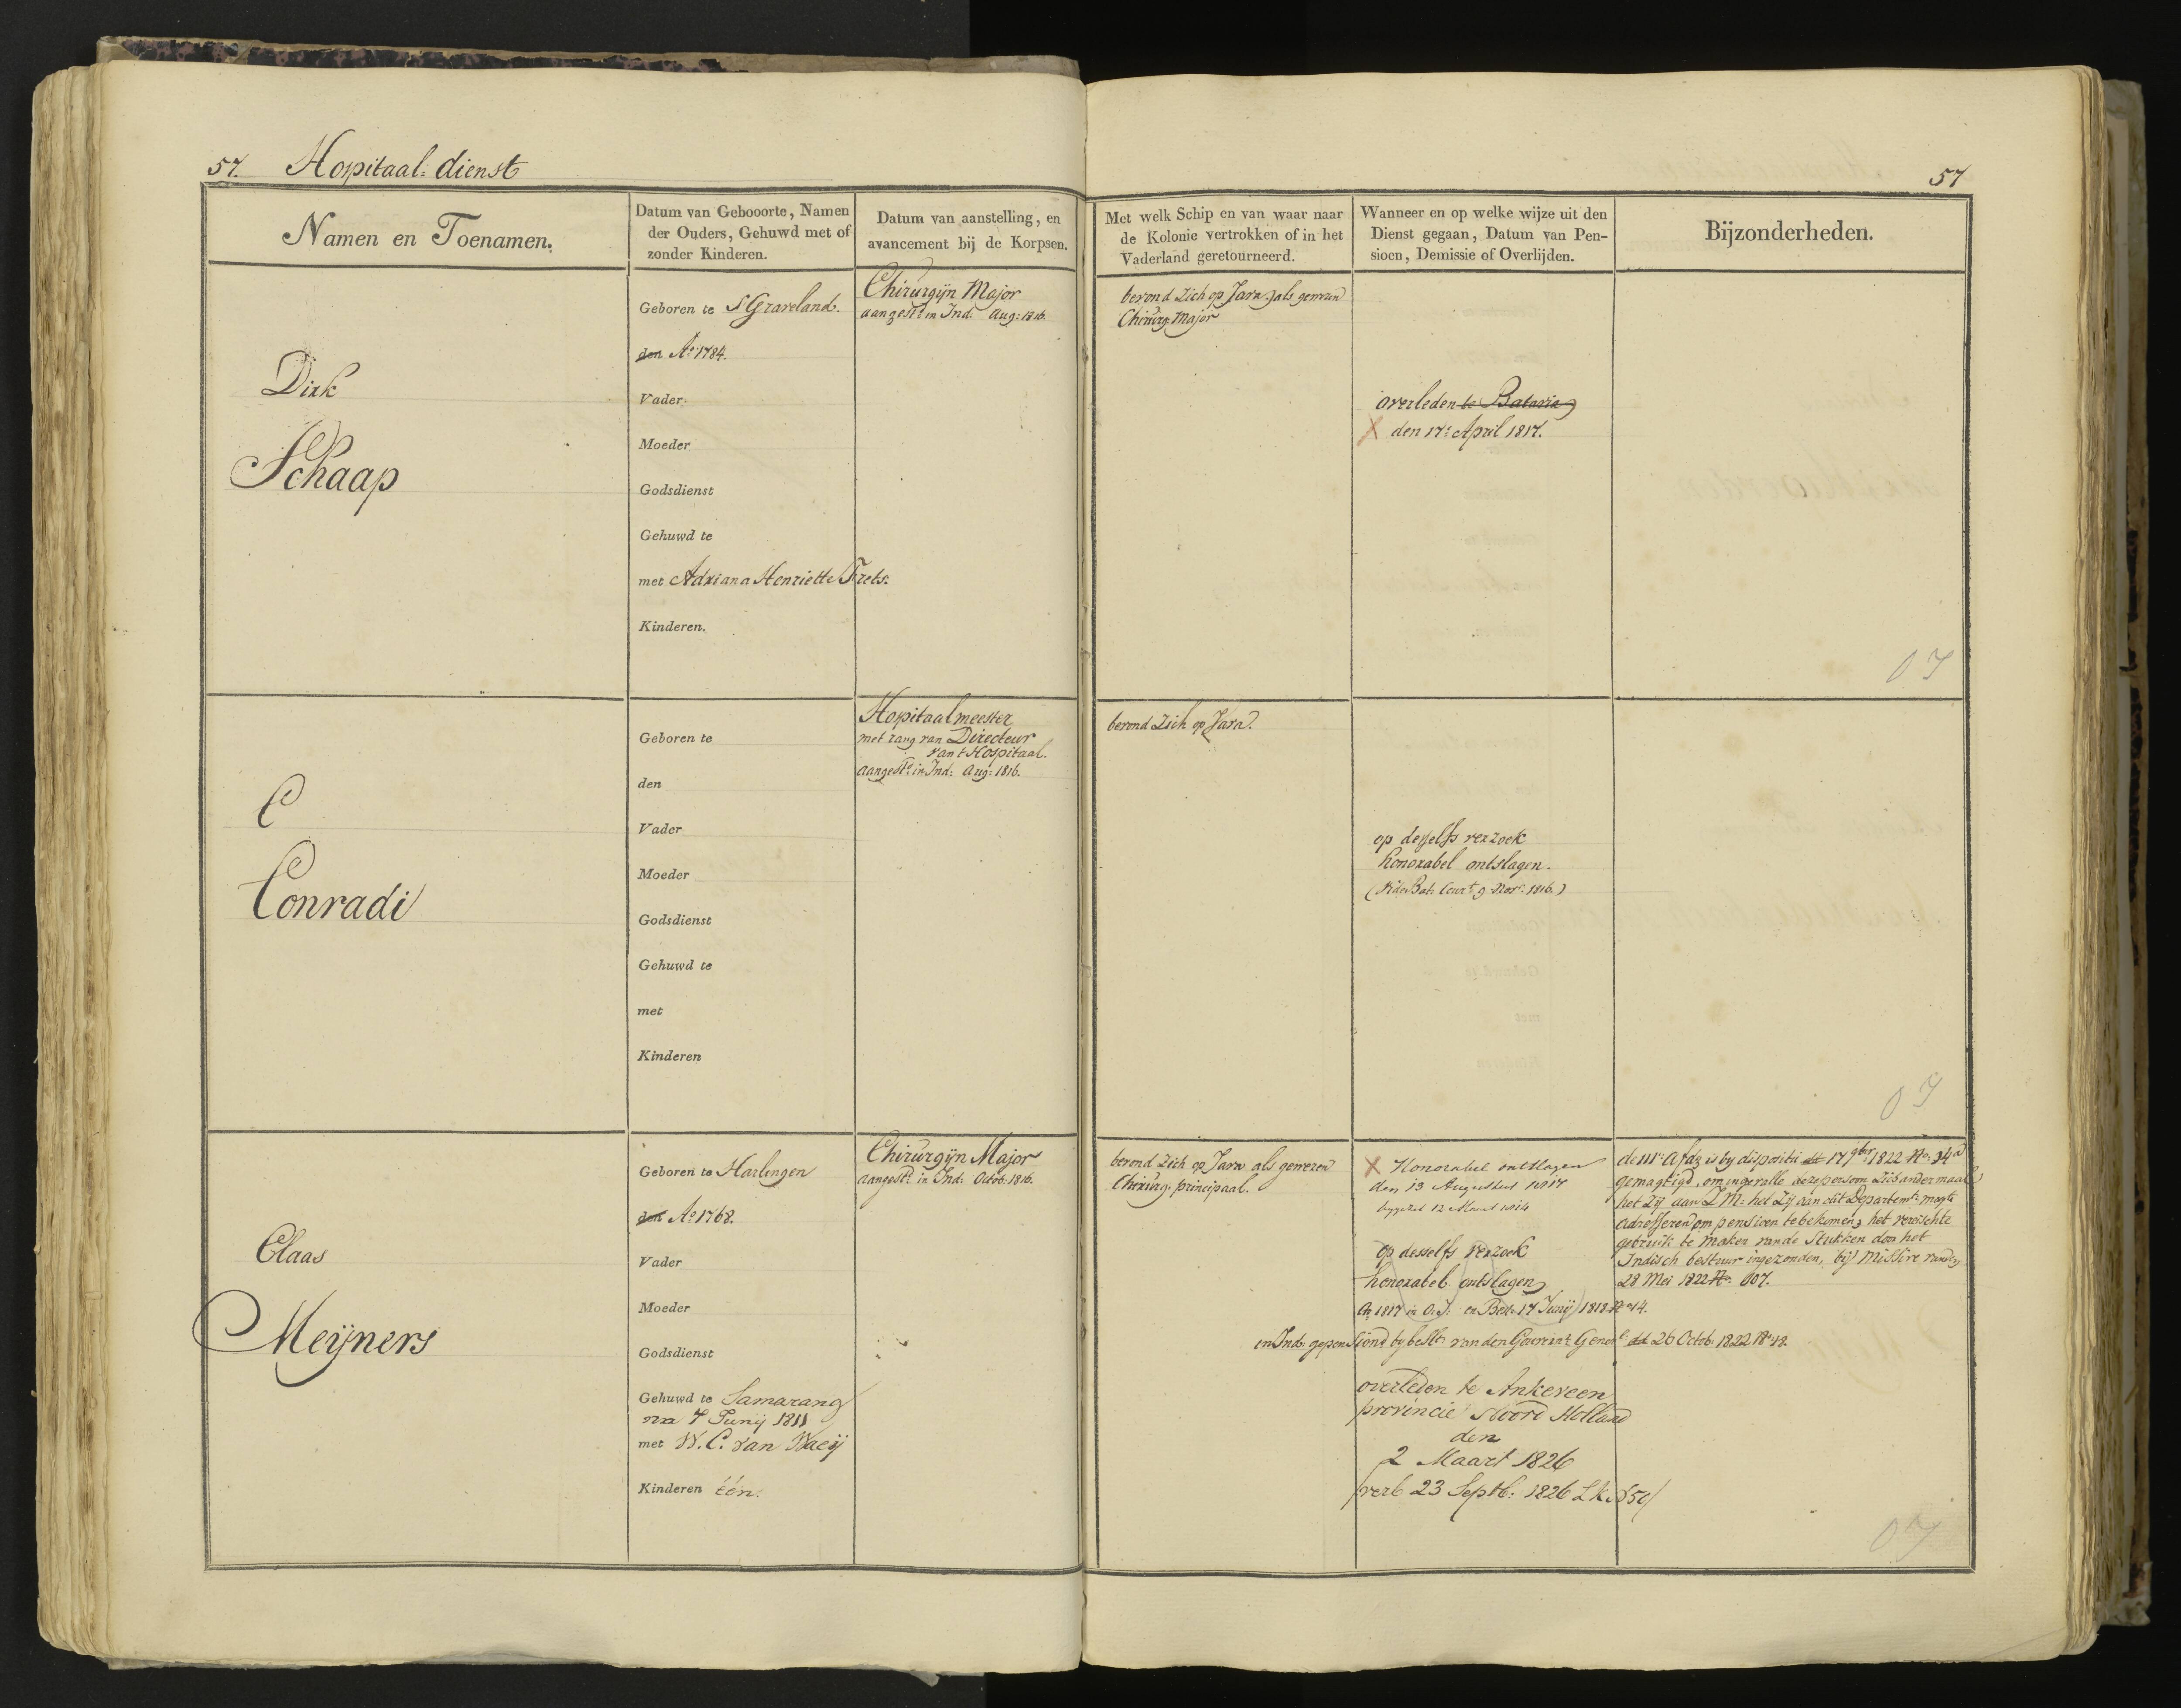 57. Hospitaal: dienst
57
Namen en Toenamen.
Datum van Gebooorte, Namen
der Ouders, Gehuwd met of
zonder Kinderen.
Datum van aanstelling, en
avancement bij de Korpsen.
Met welk Schip en van waar naar
de Kolonie vertrokken of in het
Vaderland geretourneerd.
Wanneer en op welke wijze uit den
Dienst gegaan, Datum van Pen-
sioen, Demissie of Overlijden.
Bijzonderheden.
Dirk
Schaap
Geboren te S'Graveland.
den Aº 1784.
Vader
Moeder
Godsdienst
Gehuwd te
met Adriana Henriette Frets.
Kinderen.
Chirurgijn Major
aangest: in Ind: Aug: 1816.
bevond zich op Java, als
Chirurg: Major
overleden te Batavia
X den 17: April 1817.
OI
C
Conradi
Geboren te
den
Vader
Moeder
Godsdienst
Gehuwd te
met
Kinderen
Hospitaalmeester
met rang van Directeur
van t Hospitaal.
aangest: in Ind: Aug: 1816.
bevond zich op Java.
op desselfs verzoek
honorabel ontslagen.
(Vide Bat: Cour:t 9 Nov: 1816.)
OI
Claas
Meijners
Geboren te Harlingen
den Aº 1768.
Vader
Moeder
Godsdienst
Gehuwd te Samarang
7 Junij 1811
met W. C. van Waeij
Kinderen één.
Chirurgijn Major
aangest: in Ind: Octob: 1816.
bevond zich op Java als geweren
Chirurg: principaal.
X Honorabel ontslagen
den 13 Augustus 1817
12 Maart
op desselfs verzoek
honorabel ontslagen
Aº 1817 in O:I: en Besl: 17 Junij 1818 Nº 14.
in Ind: gepensiond by beslt: van den Gouvern:t Gener:l dd 26 Octob: 1822 Nº 18.
overleden te Ankeveen
provincie Noord Holland
den
2 Maart 1826
verb 23 Septb: 1826 Lk Nº 50/
de IIIe Afd: is by dispositie dd 17 9br: 1822 Nº: 34a
gemagtigd, om ingevalle deze persoon zich andermaal
het zij aan Z M: het zij aan dit Departemt: mogte
adresseren om pensioen te bekomen, het vereischte
gebruik te maken van de stukken door het
Indisch bestuur ingezonden, bij Missive van den
28 Mei 1822 Nº 107.
OI